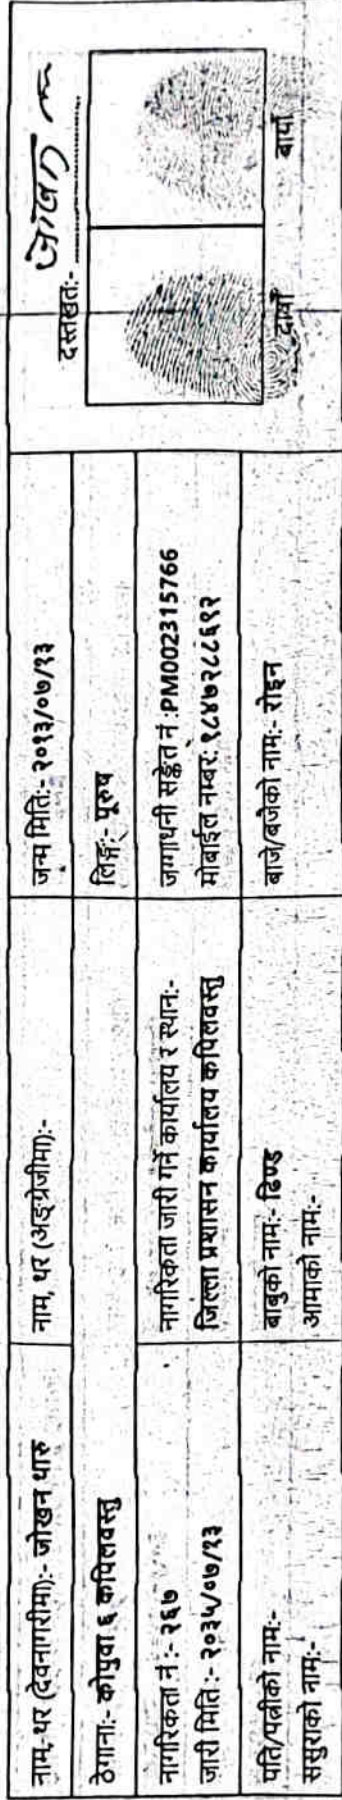 नाम, थर (देवनागरीमा):- जोखन थारु
नाम, थर (अङ्ग्रेजीमा):-
जन्म मिति:- २०१३/०७/१३
दस्तखत:- जोखन
ठेगाना:- कोपुवा ६ कपिलवस्तु
लिङ्ग:- पूरुष
नागरिकता नं:- २६७
जारी मिति:- २०३५/०७/१३
नागरिकता जारी गर्ने कार्यालय र स्थान:-
जिल्ला प्रशासन कार्यालय कपिलवस्तु
जग्गाधनी सङ्केत नं:PM002315766
मोबाईल नम्बर: ९८४७२८८६९२
पति/पत्नीको नाम:-
ससुराको नाम:-
बाबुको नाम:- ढिण्ड
आमाको नाम:-
बाजे/बजेको नाम:- रोइन
दायाँ
बायाँ